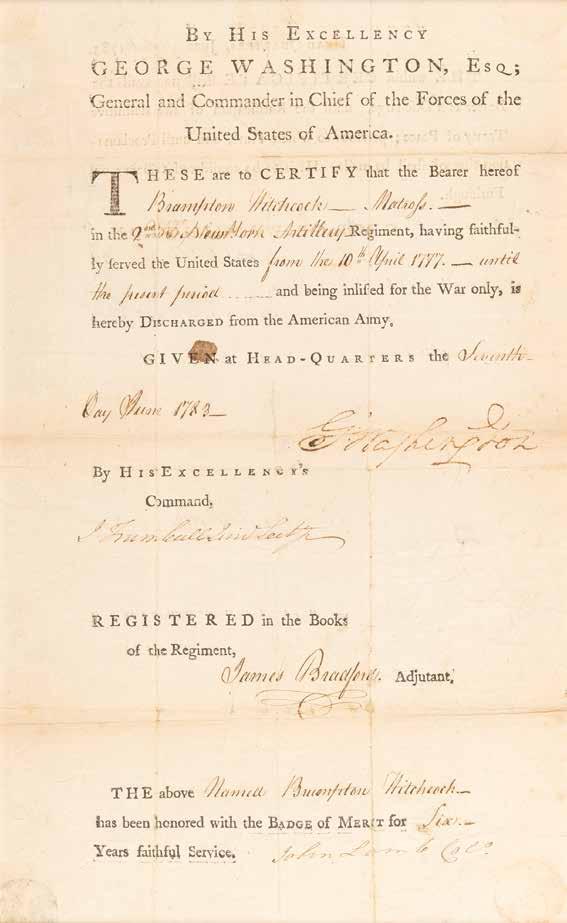 By His Excellency
GEORGE WASHINGTON, Esq;
General and Commander in Chief of the Forces of the
United States of America.
THESE are to CERTIFY that the Bearer hereof
Brampton Hitchcock — Matross. —
in the 2nd New York Artillery Regiment, having faithful-
ly served the United States from the 10th April 1777. — until
the present period and being inlisted for the War only, is
hereby DISCHARGED from the American Army.
GIVEN at HEAD-QUARTERS the Seventh
Day June 1783 —
G:Washington
By HIS EXCELLENCY's
Command,
J Trumbull Jun Secty
REGISTERED in the Books
of the Regiment,
James Bradford. Adjutant,
THE above Named Brompton Hitchcock —
has been honored with the BADGE of MERIT for Six —
Years faithful Service. John Lamb Colo.